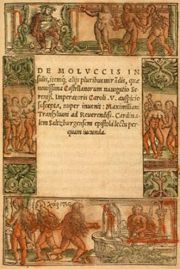 DE MOLVCCIS IN
sulis, itemq; alijs pluribus mirādis, quæ
nouissima Castellanorum nauigatio Se
reniss. Imperatoris Caroli. V. auspicio
suscepta, nuper inuenit: Maximiliani
Transyluani ad Reuerendiss. Cardina
lem Saltzburgensem epistola lectu per
quam iucunda.